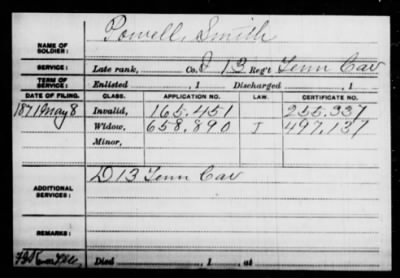 NAME OF SOLDIER: Powell, Smith
SERVICE: Late rank, Co. 13 Reg't Tenn Cav
TERM OF SERVICE: Enlisted , 1 Discharged , 1
DATE OF FILING. CLASS. APPLICATION NO. LAW. CERTIFICATE NO.
1871 May 8 Invalid, 165.451 255.337
Widow, 658.890 I 497.137
Minor,
ADDITIONAL SERVICES: D 13 Tenn Cav
REMARKS:
Died , 1 , at